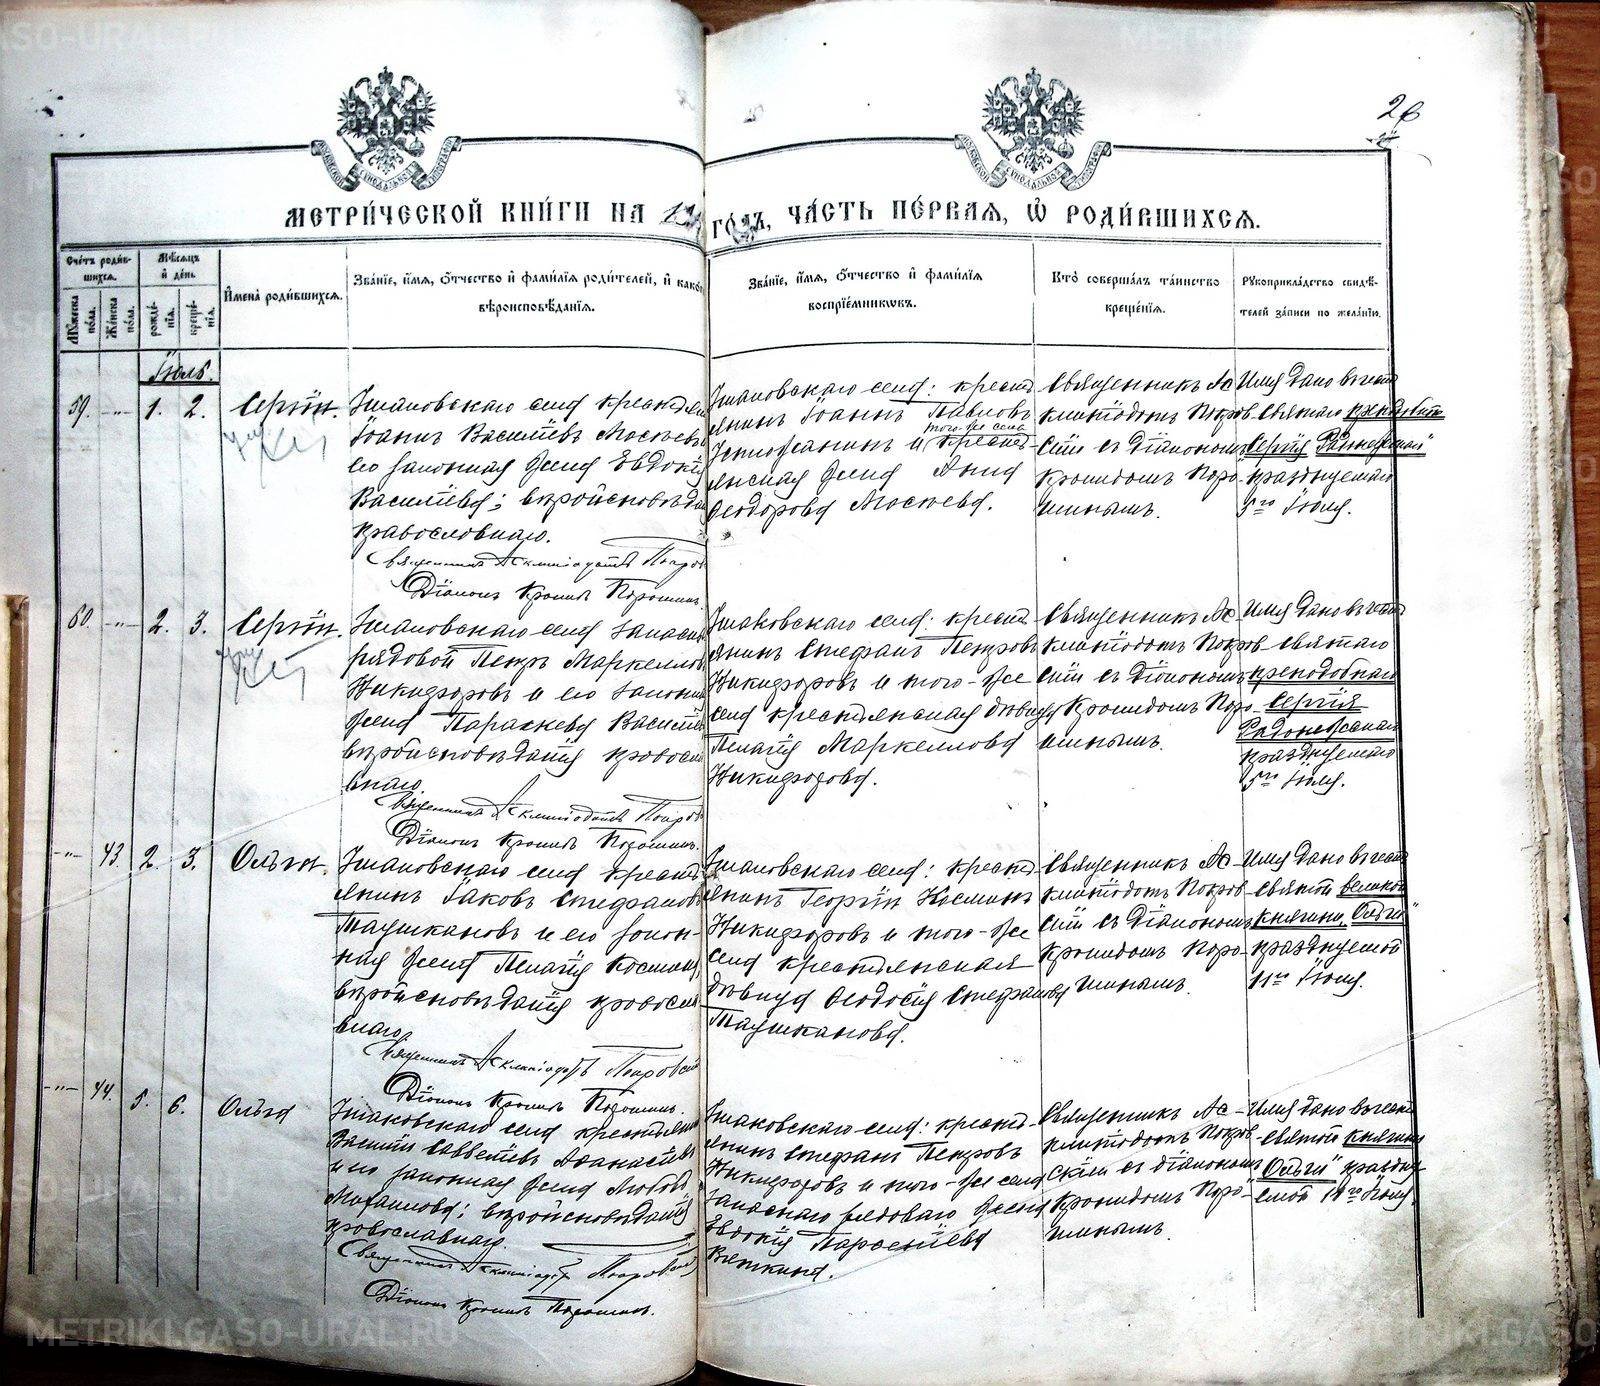 METRIKI.GASO-URAL.RU
26
МЕТРИ́ЧЕСКОЙ КНИ́ГИ НА
ГО́ДЪ, ЧА́СТЬ ПЕ́РВАЯ, Ѡ҆ РОДИ́ВШИХСЯ.
Сче́тъ роди́в-
шихся.
Мѣ́сяцъ
и҆ де́нь
Му́жеска
по́ла.
Же́нска
по́ла.
рожде́-
нїѧ.
креще́-
нїѧ.
И҆мена̀ роди́вшихся.
Зва́нїе, и҆́мя, ѻ҆́тчество и҆ фами́лїя роди́телей, и҆ како́гѡ
вѣроисповѣ́данїя.
Зва́нїе, и҆́мя, ѻ҆́тчество и҆ фами́лїя
воспрїе́мникѡвъ.
Кто̀ соверша́лъ та́инство
креще́нїя.
Рꙋкоприкла́дство свидѣ́-
телей за́писи по жела́нїю.
Іюль.
59. -„- 1. 2.
Сергій.
села крестья
Іоаннъ Васильевъ
его законная жена Евдокія
Васильева; вѣроисповѣда
православнаго.
Священникъ Асклипіодотъ Покров
Діаконъ Кронидъ Порошинъ.
села: крестья
янинъ Іоаннъ Павловъ
того-же села
и крестья
янская жена Анна
Ѳеодорова
Священникъ Ас
клипіодотъ Покров
скій съ діакономъ
Кронидомъ Поро-
шинымъ.
Имя дано въ честь
святаго преподобн
Сергія Радонежскаго
празднуемаго
5го Іюля.
60. -„- 2. 3.
Сергій.
села запасный
рядовой Петръ Маркеллов
Никифоровъ и его законн
жена Параскева Василь
вѣроисповѣданія правосла
внаго.
Священникъ Асклипіодотъ Покров
Діаконъ Кронидъ Порошинъ.
села: крестья
янинъ Стефанъ Петровъ
Никифоровъ и того-же
села крестьянская дѣвица
Пелагія Маркеллова
Никифорова.
Священникъ Ас-
клипіодотъ Покров-
скій съ діакономъ
Кронидомъ Поро-
шинымъ.
Имя дано въ честь
святаго
преподобнаго
Сергія
Радонежскаго
празднуемаго
5го Іюля.
-„- 43. 2. 3.
Ольга.
села крестья
янинъ Іаковъ Стефановъ
Таушкановъ и его закон-
ная жена Пелагія Космина
вѣроисповѣданія правосла
внаго.
Священникъ Асклипіодотъ Покровскій
Діаконъ Кронидъ Порошинъ.
села: крестья
янинъ Георгій Косминъ
Никифоровъ и того-же
села крестьянская
дѣвица Ѳеодосія Стефанова
Таушканова.
Священникъ Ас-
клипіодотъ Покров-
скій съ діакономъ
Кронидомъ Поро-
шинымъ.
Имя дано въ честь
святой великой
княгини „Ольги“
празднуемой
11го Іюля.
-„- 44. 5. 6.
Ольга
села крестьяни
Василій Савватіевъ Аѳанасьевъ
и его законная жена Любовь
Михаилова; вѣроисповѣданія
православнаго.
Священникъ Асклипіодотъ Покровскій
Діаконъ Кронидъ Порошинъ.
села: крестья-
янинъ Стефанъ Петровъ
Никифоровъ и того-же села
запаснаго рядоваго жена
Евдокія Парѳеніева
Вяткина.
Священникъ Ас-
клипіодотъ Покров
скій съ діакономъ
Кронидомъ Поро-
шинымъ.
Имя дано въ честь
святой княгини
„Ольги“ праздну
емой 11го Іюля.
METRIKI.GASO-URAL.RU